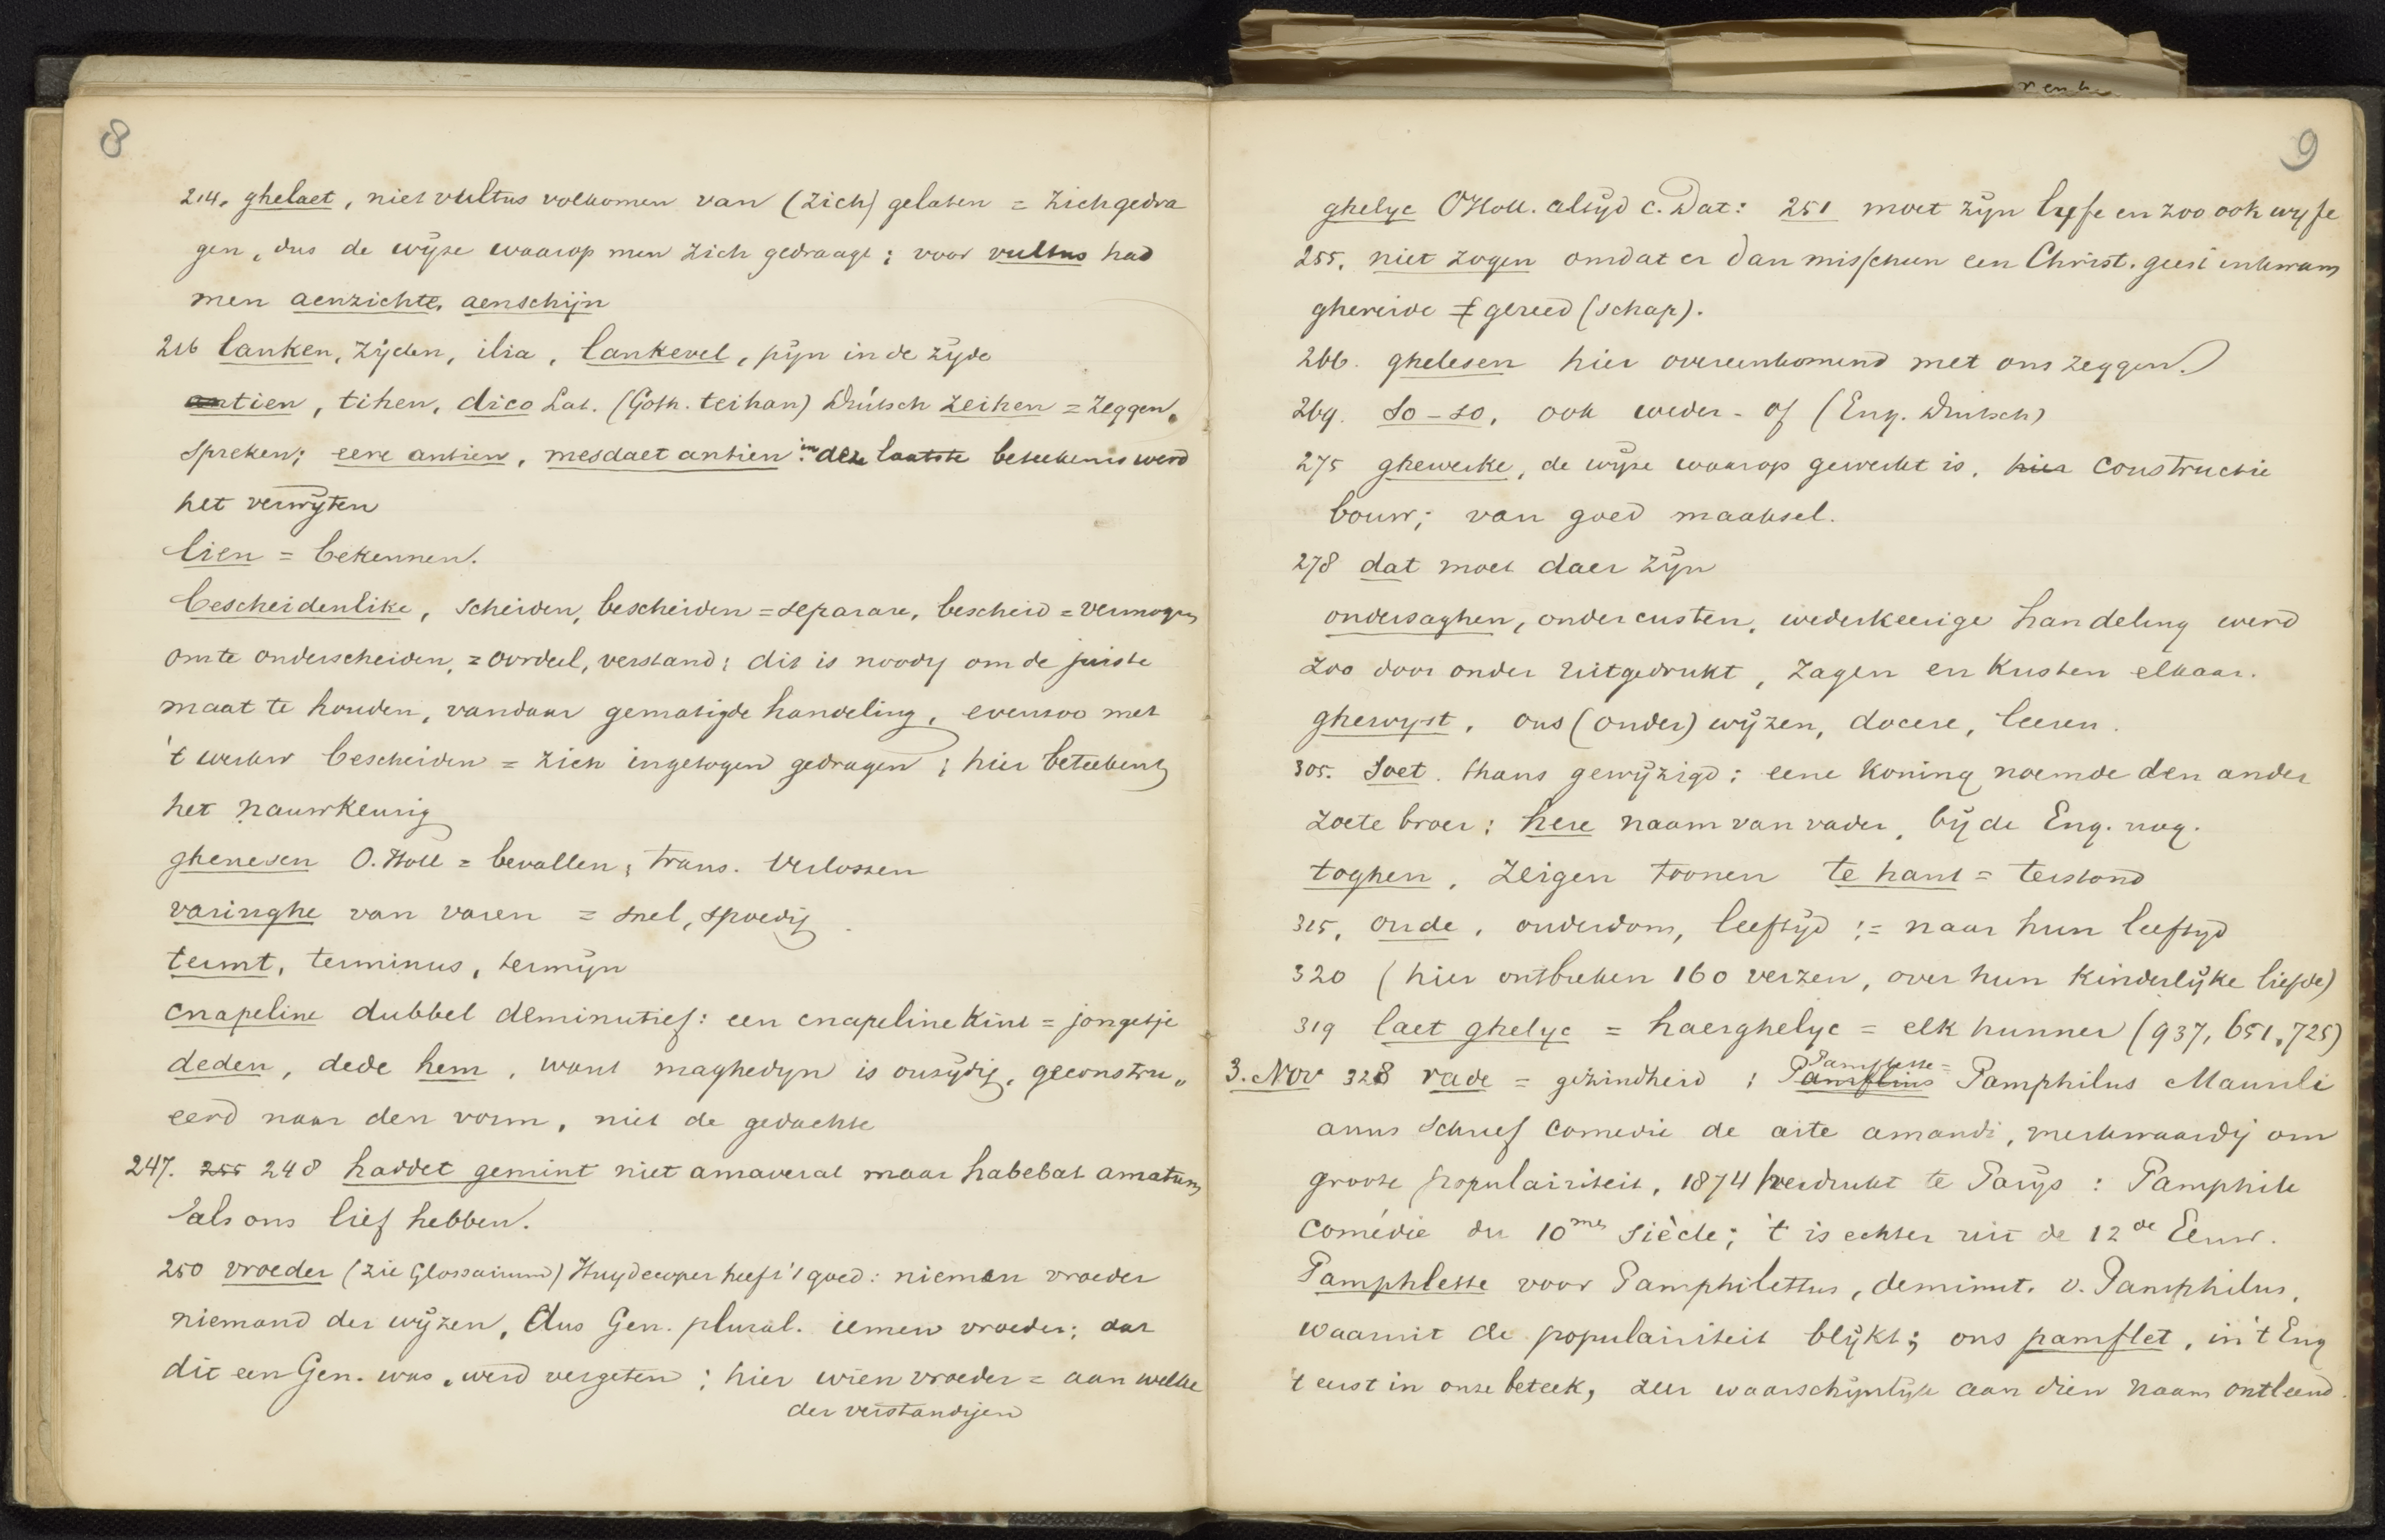 8
214. ghelaet, niet vultus volkomen van (zich) gelaten = zich gedra
gen, dus de wijze waarop men zich gedraagt; voor vultus had
men aenzichte, aenschijn
216 lanken, zijden, ilia, lankevel, pijn in de zijde
antien, tihen, dico Lat. (Goth. teihan) Duitsch zeihen = zeggen,
spreken; eere antien, mesdaet antien: in deze laatste beteekenis werd
het verwijten
lien = bekennen.
bescheidenlike, scheiden, bescheiden = separare, bescheid = vermogen
om te onderscheiden, = oordeel, verstand; dit is noodig om de juiste
maat te houden, vandaar gematigde handeling, evenzoo met
't werkw bescheiden = zich ingetogen gedragen; hier beteekent
het nauwkeurig
ghenesen O.Holl = bevallen; trans. verlossen
varinghe van varen = snel, spoedig.
termt, terminus, termijn
cnapeline dubbel deminutief: een cnapeline kint = jongetje
deden, dede hem, want maghedyn is onzijdig, geconstru„
eerd naar den vorm, niet de gedachte
247. 255 248 haddet gemint niet amaverat maar habebat amatum
als ons lief hebben.
250 vroeder (zie Glossarium) Huydecoper heeft 't goed: nieman vroeder
niemand der wijzen, dus Gen. plural. iemen vroeder; dat
dit een Gen. was, werd vergeten; hier wien vroeder = aan welke
der verstandigen
9
ghelyc OHoll. altijd c. Dat: 251 moet zijn lyfe en zoo ook wyfe
255. niet zogen omdat er dan misschien een Christ. geest inkwam
ghereide ≠ gereed (schap).
266. ghelesen hier overeenkomend met ons zeggen.
269. so-so, ook weder-of (Eng. Duitsch)
275 ghewerke, de wijze waarop gewerkt is, hier constructie
bouw; van goed maaksel.
278 dat moet daer zijn
ondersaghen, ondercusten, wederkeerige handeling werd
zoo door onder uitgedrukt, zagen en kusten elkaar.
ghewyst, ons (onder) wijzen, docere, leeren.
305. soet. thans gewijzigd; eene koning noemde den ander
zoete broer; here naam van vader, bij de Eng. nog.
toghen, zeigen toonen te hant = terstond
315, oude, ouderdom, leeftijd := naar hun leeftijd
320 (hier ontbreken 160 verzen, over hun kinderlijke liefde)
319 laet ghelyc = haerghelyc = elk hunner (937, 651, 725)
3. Nov 328 rade = gezindheid; Pamflius Pamflette = Pamphilus Maurili
anus schreef comedie de arte amandi, merkwaardig om
groote populairiteit, 1874 herdrukt te Parijs: Pamphile
comédie du 10me siècle; 't is echter uit de 12de Eeuw.
Pamphlette voor Pamphilettus, deminut. v. Pamphilus,
waaruit de populairiteit blijkt; ons pamflet, in 't Eng
't eerst in onze beteek, zeer waarschijnlijk aan dien naam ontleend.